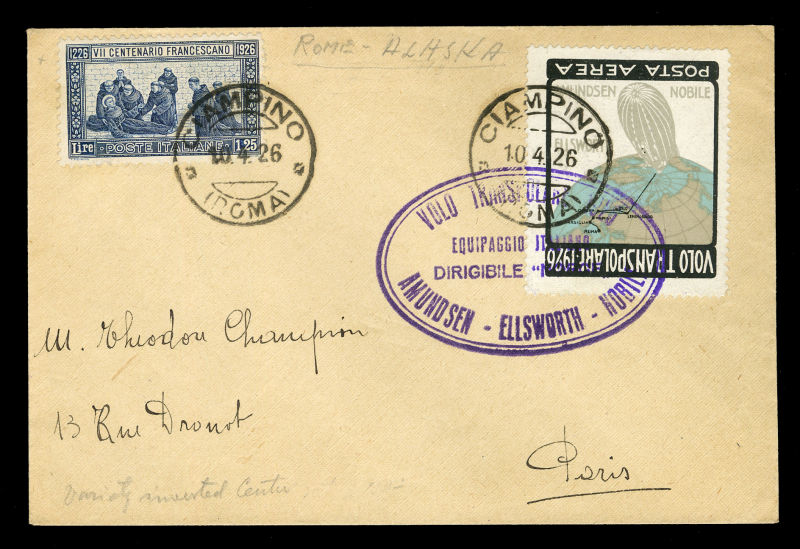 1226 VII CENTENARIO FRANCESCANO 1926
POSTE ITALIANE
lire 1,25
ROME - ALASKA
CIAMPINO
10.4.26
(ROMA)
CIAMPINO
10.4.26
(ROMA)
POSTA AEREA
AMUNDSEN NOBILE
ELLSWORTH
ROMA
LENINGRADO
VOLO TRANSPOLARE-1926
VOLO TRANSPOLARE
EQUIPAGGIO ITALIANO
DIRIGIBILE "NORGE"
AMUNDSEN - ELLSWORTH - NOBILE
M. Theodore Champion
13 Rue Drouot
Paris
Variety inverted Center